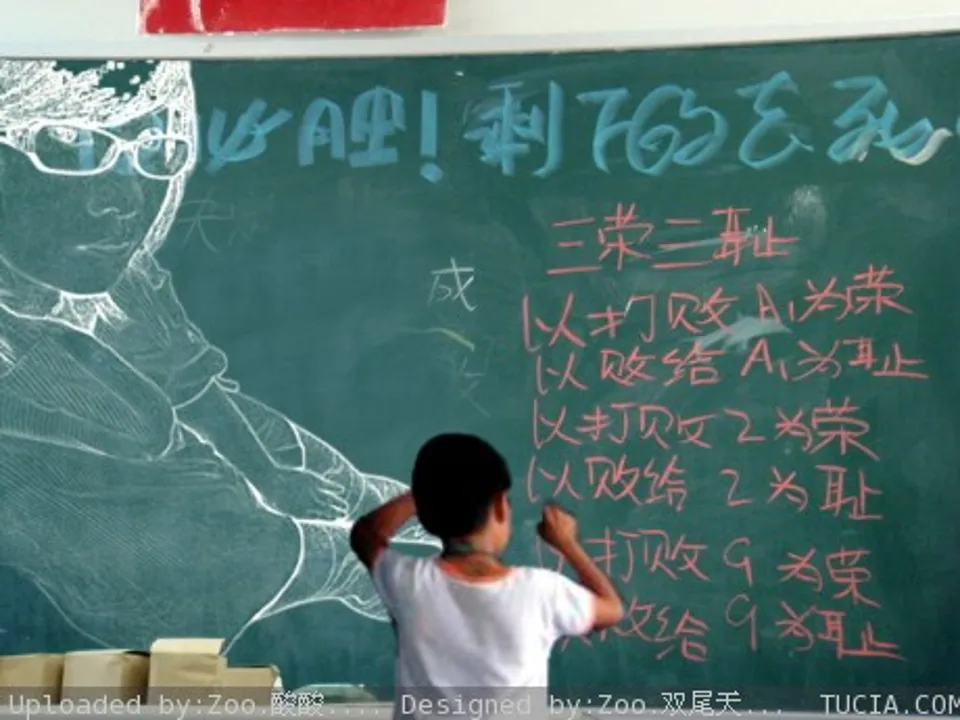 必胜!剩下的去死
天
成
三荣三耻
以打败A1为荣
以败给A1为耻
以打败2为荣
以败给2为耻
以打败9为荣
败给9为耻
Uploaded by:Zoo.酸酸.... Designed by:Zoo.双尾天... TUCIA.COM